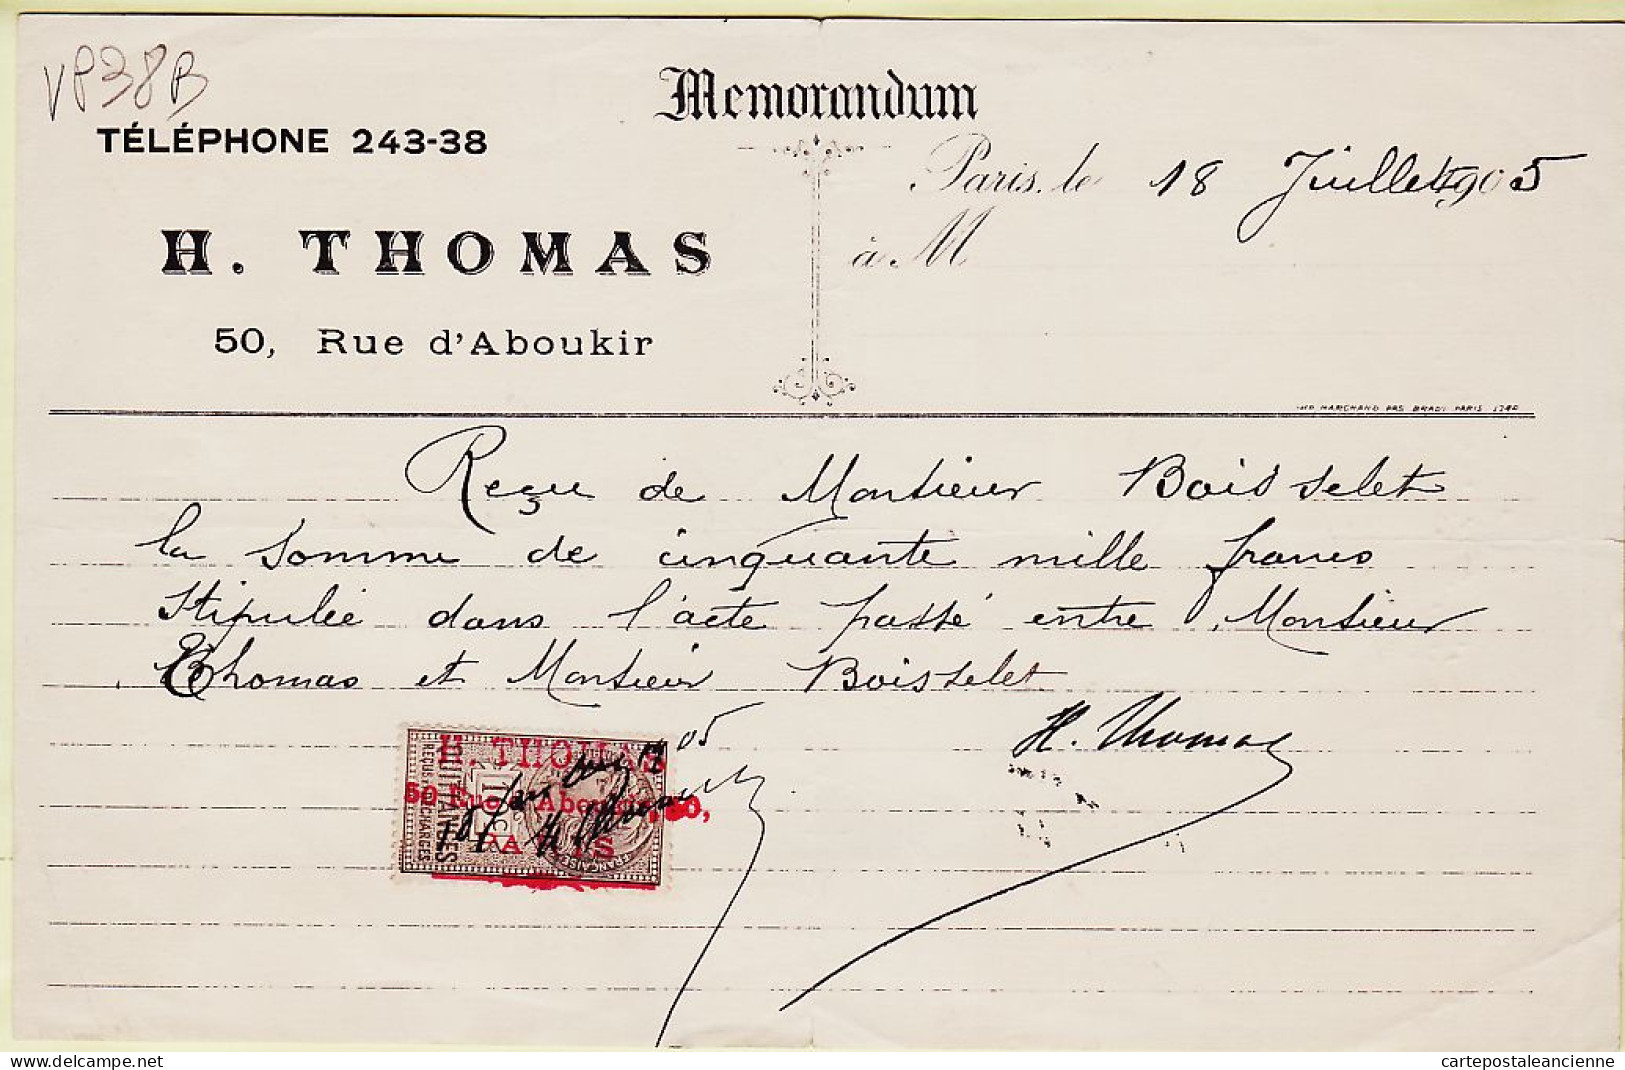 VP38B
TÉLÉPHONE 243-38
H. THOMAS
50, Rue d'Aboukir
Memorandum
Paris, le 18 Juillet 1905
à M
Reçu de Monsieur Boisselet
la somme de cinquante mille francs
stipulée dans l'acte passé entre Monsieur
Thomas et Monsieur Boisselet
H. Thomas
05
H. THOMAS
50 Rue d'Aboukir, 50,
PARIS
QUITTANCES
REÇUS DÉCHARGES
FRANÇAISE
delcampe.net
cartepostaleancienne